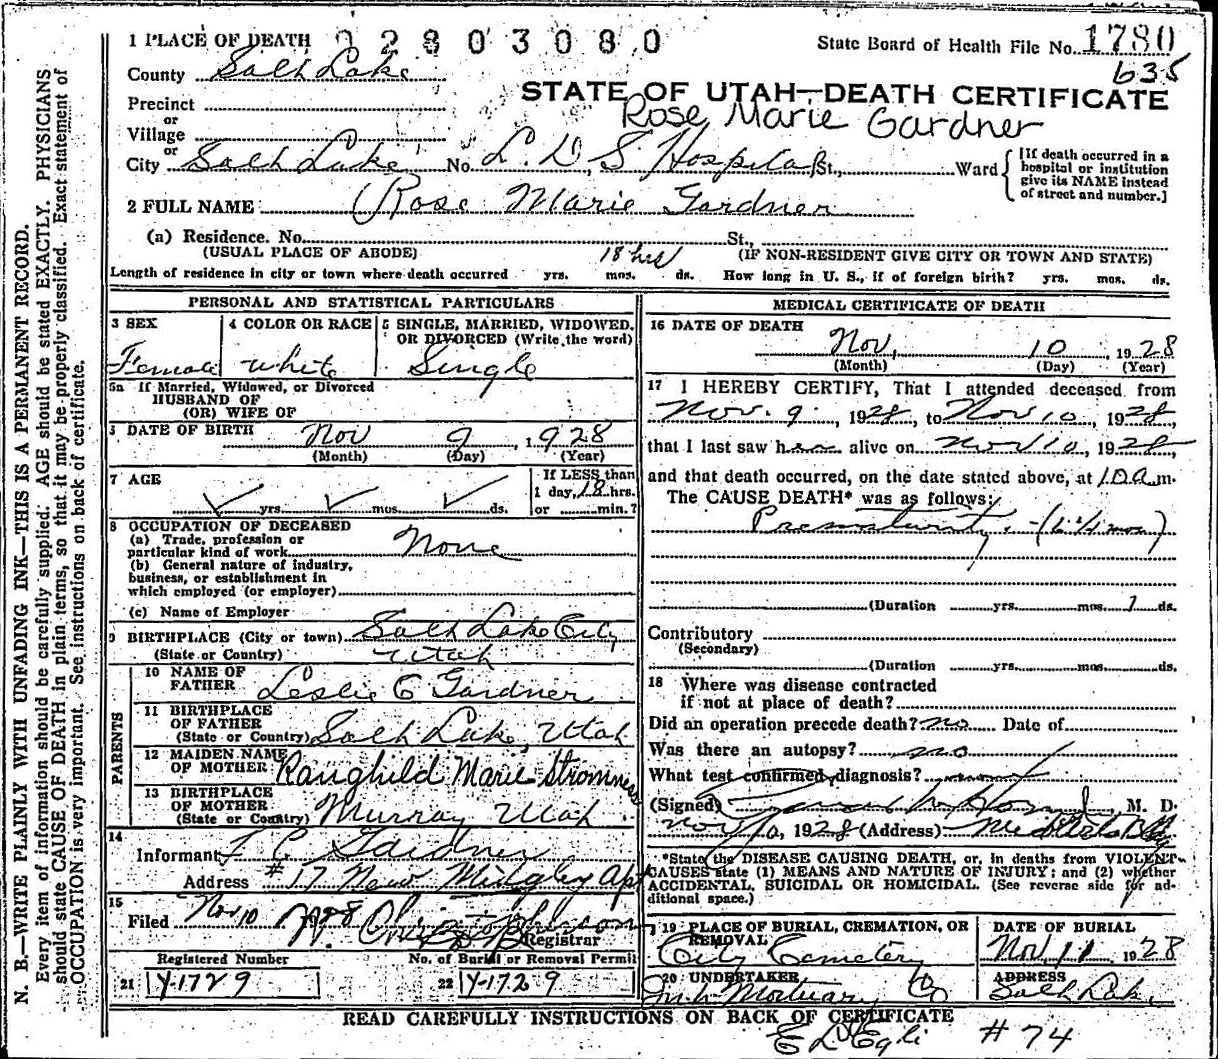 1 PLACE OF DEATH 0 2 8 0 3 0 8 0 State Board of Health File No. 1780
County Salt Lake 635
STATE OF UTAH—DEATH CERTIFICATE
Precinct
or
Rose Marie Gardner
Village
or
City Salt Lake No. L. D. S Hospital St., Ward [If death occurred in a hospital or institution give its NAME instead of street and number.]
2 FULL NAME Rose Marie Gardner
(a) Residence. No. St.,
(USUAL PLACE OF ABODE) 18 hrs (IF NON-RESIDENT GIVE CITY OR TOWN AND STATE)
Length of residence in city or town where death occurred yrs. mos. ds. How long in U. S., if of foreign birth? yrs. mos. ds.
PERSONAL AND STATISTICAL PARTICULARS
3 SEX 4 COLOR OR RACE 5 SINGLE, MARRIED, WIDOWED,
OR DIVORCED (Write the word)
Female white Single
5a If Married, Widowed, or Divorced
HUSBAND OF
(OR) WIFE OF
6 DATE OF BIRTH Nov 9 1928
(Month) (Day) (Year)
7 AGE If LESS than
1 day, 18 hrs.
yrs. mos. ds. or min.?
8 OCCUPATION OF DECEASED
(a) Trade, profession or
particular kind of work None
(b) General nature of industry,
business, or establishment in
which employed (or employer)
(c) Name of Employer
9 BIRTHPLACE (City or town) Salt Lake City
(State or Country) Utah
PARENTS
10 NAME OF
FATHER Leslie C Gardner
11 BIRTHPLACE
OF FATHER
(State or Country) Salt Lake, Utah
12 MAIDEN NAME
OF MOTHER Ranghild Marie Stromness
13 BIRTHPLACE
OF MOTHER
(State or Country) Murray Utah
14
Informant L C Gardner
Address #17 New Apt
15
Filed Nov 10 1928
Registrar
Registered Number No. of Burial or Removal Permit
21 Y-1729 22 Y-1729
MEDICAL CERTIFICATE OF DEATH
16 DATE OF DEATH
Nov, 10, 1928
(Month) (Day) (Year)
17 I HEREBY CERTIFY, That I attended deceased from
Nov. 9, 1928, to Nov 10, 1928
that I last saw her alive on Nov 10, 1928
and that death occurred, on the date stated above, at m.
The CAUSE DEATH* was as follows:
Prematurity
(Duration yrs. mos. 1 ds.
Contributory
(Secondary)
(Duration yrs. mos. ds.
18 Where was disease contracted
if not at place of death?
Did an operation precede death? no Date of
Was there an autopsy? no
What test confirmed diagnosis?
(Signed) M. D.
Nov 10, 1928 (Address)
*State the DISEASE CAUSING DEATH, or, in deaths from VIOLENT
CAUSES state (1) MEANS AND NATURE OF INJURY; and (2) whether
ACCIDENTAL, SUICIDAL OR HOMICIDAL. (See reverse side for additional space.)
19 PLACE OF BURIAL, CREMATION, OR
REMOVAL DATE OF BURIAL
City Cemetery Nov, 11 1928
20 UNDERTAKER ADDRESS
Mortuary Co Salt Lake
READ CAREFULLY INSTRUCTIONS ON BACK OF CERTIFICATE
#74
N. B.—WRITE PLAINLY WITH UNFADING INK—THIS IS A PERMANENT RECORD.
Every item of information should be carefully supplied. AGE should be stated EXACTLY. PHYSICIANS
should state CAUSE OF DEATH in plain terms, so that it may be properly classified. Exact statement of
OCCUPATION is very important. See instructions on back of certificate.